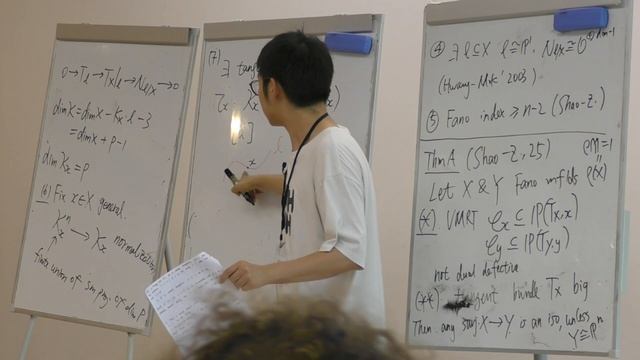 0→Tℓ→Tx|ℓ→Nℓ/x→0
dim K = dim X − Kx·ℓ − 3
= dim X + p − 1
dim Kx = p
(6) Fix x∈X general.
Kx^n → Kx normalization
finite union of sm proj. of dim p
(7) ∃
x
④ ∃ ℓ⊆X ℓ≅ℙ¹. Nℓ/x ≅ O
(Hwang-Mok '2003)
⑤ Fano index ≥ n−2 (Shao-Z.)
Thm A (Shao-Z, 25)
Let X & Y Fano mfds
ρ(X)
(*). VMRT 𝒞x ⊆ ℙ(Tx,x)
𝒞y ⊆ ℙ(TY,y)
not dual defective
(**) tangent bundle Tx big
Then any surj X→Y is an iso, unless
Y≅ℙⁿ